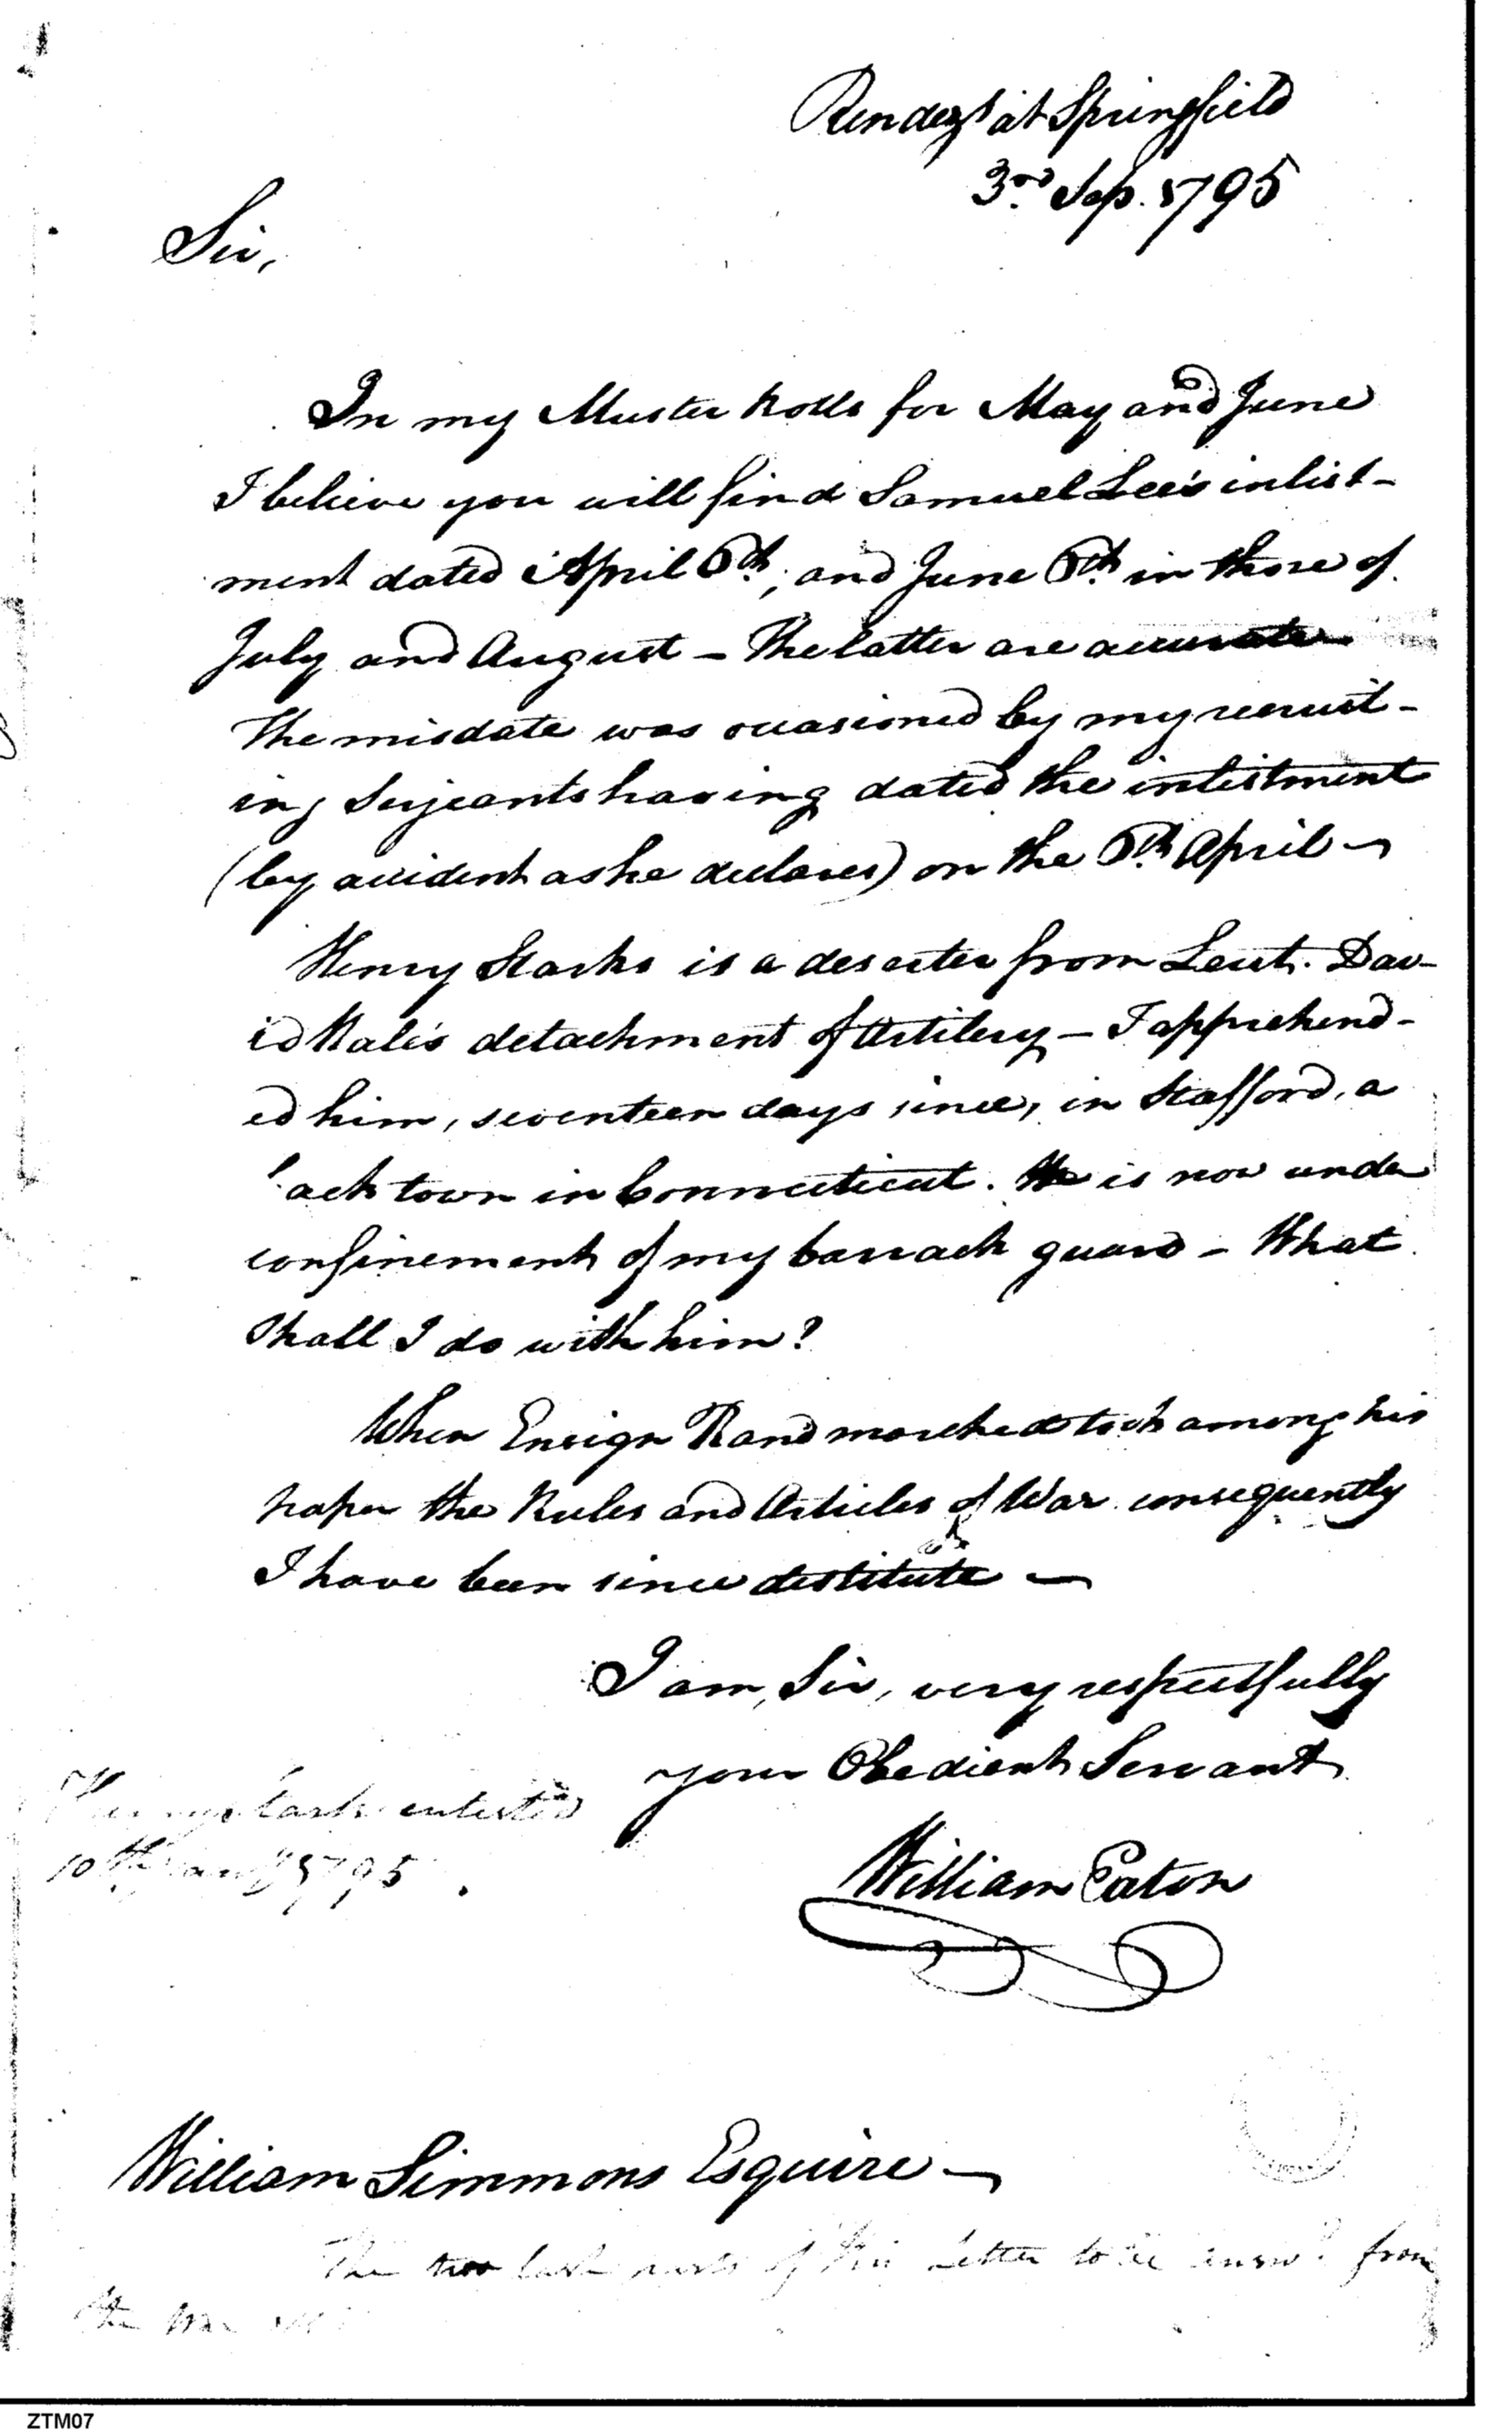 Rendezs. at Springfield
3rd. Sep. 1795
Sir,
In my Muster Rolls for May and June
I believe you will find Samuel Lee's inlist-
ment dated April 6th., and June 6th. in those of
July and August – The latter are accurate
The misdate was occasioned by my recruit-
ing Serjeants having dated the inlistment
(by accident as he declares) on the 6th. April –
Henry Starks is a deserter from Leut. Dav-
id Hale's detachment of Artilery – I apprehend-
ed him, seventeen days since, in Stafford, a
back town in Connecticut. He is now under
confinement of my barrack guard – What
shall I do with him?
When Ensign Rand marched took among his
paper the Rules and Articles of War consequently
I have been since destitute –
I am, Sir, very respectfully
your Obedient Servant
William Eaton
Henry Stark enlisted
10th Jany 1795.
William Simmons Esquire –
The two last parts of this Letter to be answd. from
the War
ZTM07